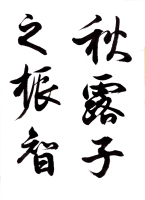 秋露子
之振智